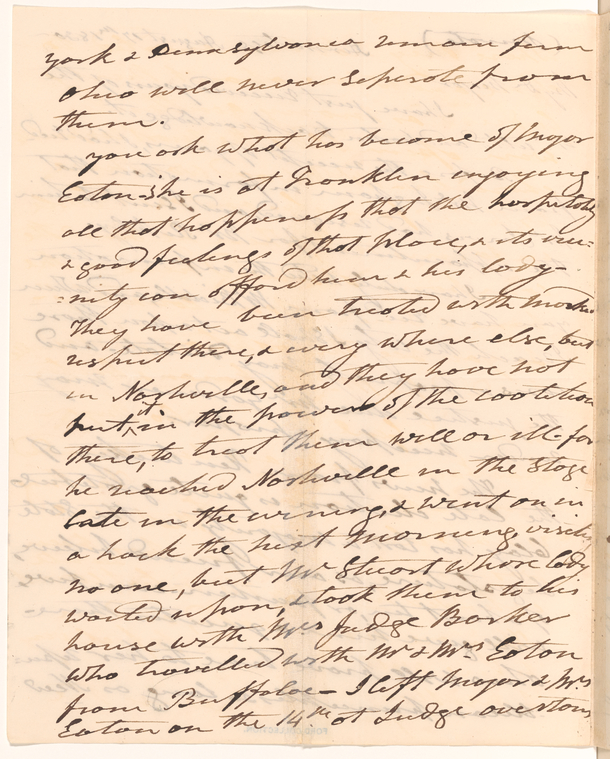 york & Pennsylvania remain firm
Ohio will never seperate from
them.
you ask what has become of Major
Eaton. he is at Franklin enjoying
all that happiness that the hospitality
& good feelings of that place, & its vici-
=nity can afford him & his lady-
They have been treated with marked
respect there, & every where else, but
in Nashville, and they have not
put it in the power of the coalition
there, to treat them well or ill- for
he reached Nashville in the Stage
late in the evening, & went on in
a hack the next morning, visiting
no one, but Mr Stuart whose lady
waited upon, & took them to his
house with Mrs Judge Barker
who travelled with Mr & Mrs Eaton
from Buffaloe - I left Major & Mrs
Eaton on the 14th at Judge overtons